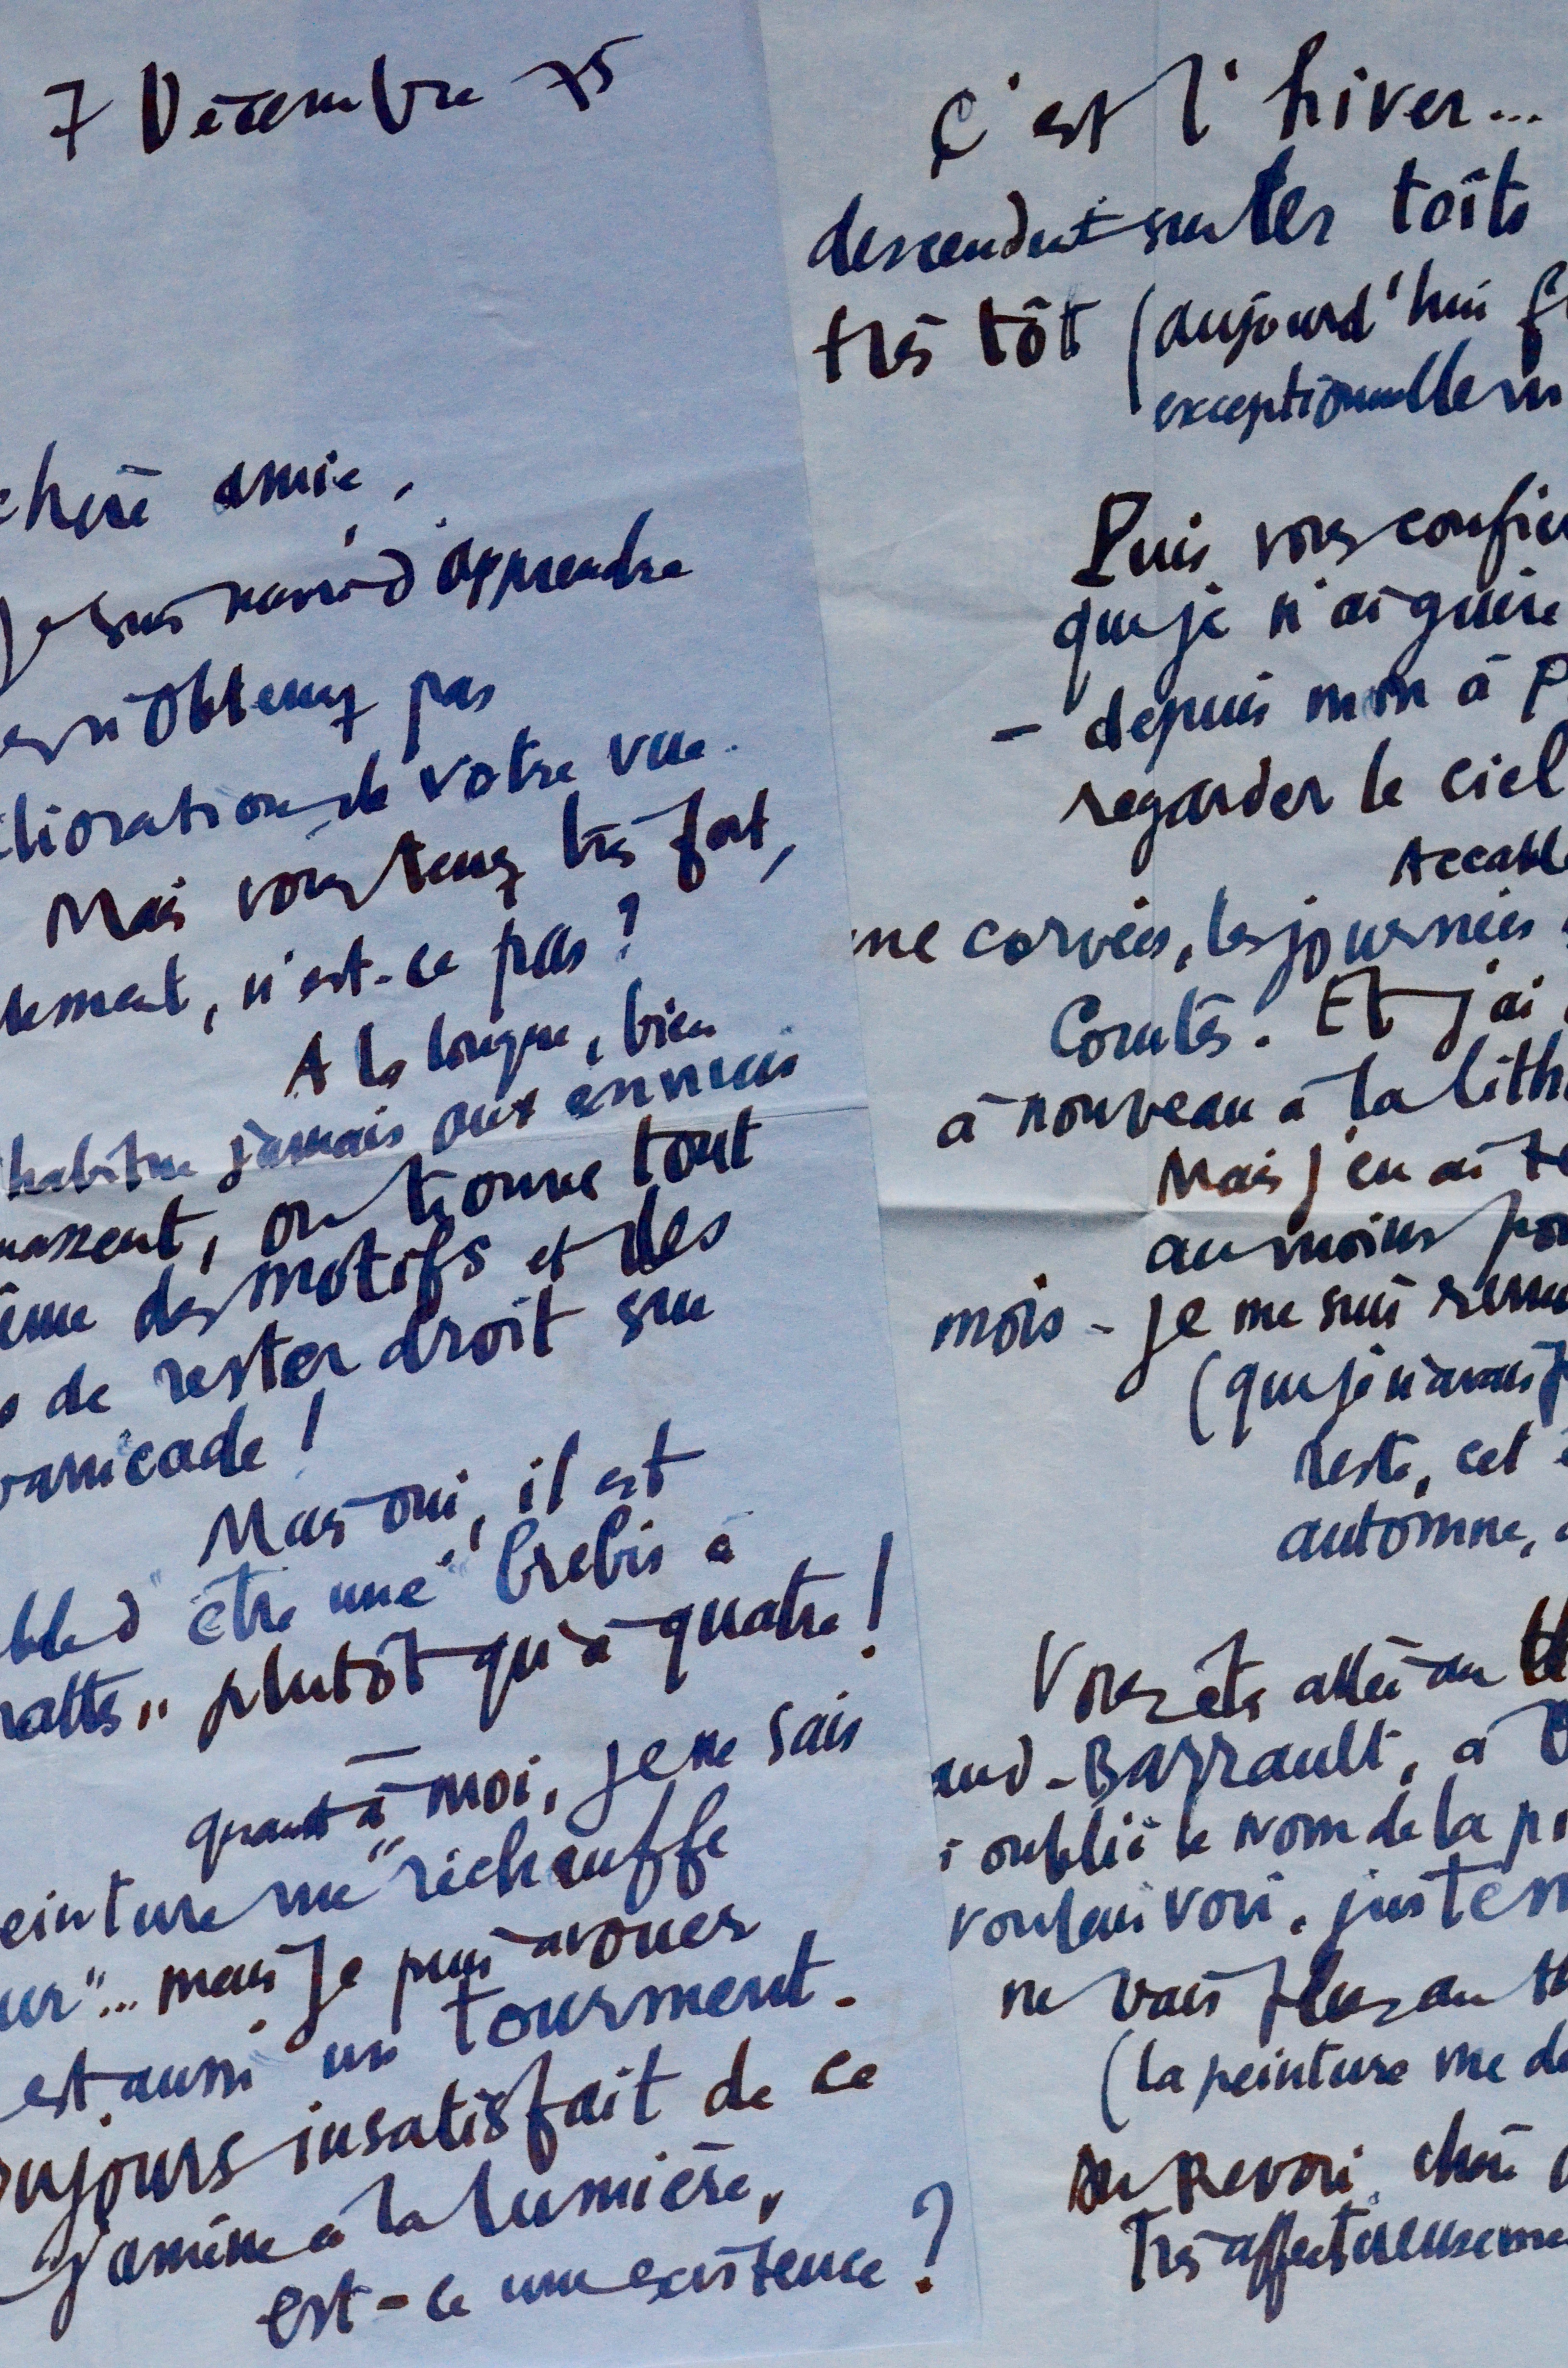 7 Décembre 75
chère amie,
Je suis navré d'apprendre
n'obtenez pas
élioration de votre vue.
Mais vous tenez très fort,
lement, n'est-ce pas ?
A la longue, bien
habitue jamais aux ennuis
naxent, on trouve tout
ême des motifs et des
s de rester droit sur
barricade !
Mais oui, il est
ble d'être une "brebis à
pattes" plutôt qu'à quatre !
quant à moi, je ne sais
peinture me "réchauffe
ur"... mais je puis avouer
est aussi un tourment.
oujours insatisfait de ce
j'amène à la lumière,
est-ce une existence ?
C'est l'hiver...
descendent sur les toits
très tôt (aujourd'hui
exceptionnellem
Puis vous confier
que je n'ai guère
- depuis mon à P
regarder le ciel
Accablé
me corvées, les journées
Courtes. Et j'ai
à nouveau à la lith
Mais j'en ai te
au moins pour
mois - je me suis remi
(que je n'avais p
reste, cet é
automne,
Vous êtes allée au th
aud-Barrault, à
i oublié le nom de la pi
voulais voir, justem
ne vais plus au th
(la peinture me dé
Au Revoir, chère
Très affectueuseme